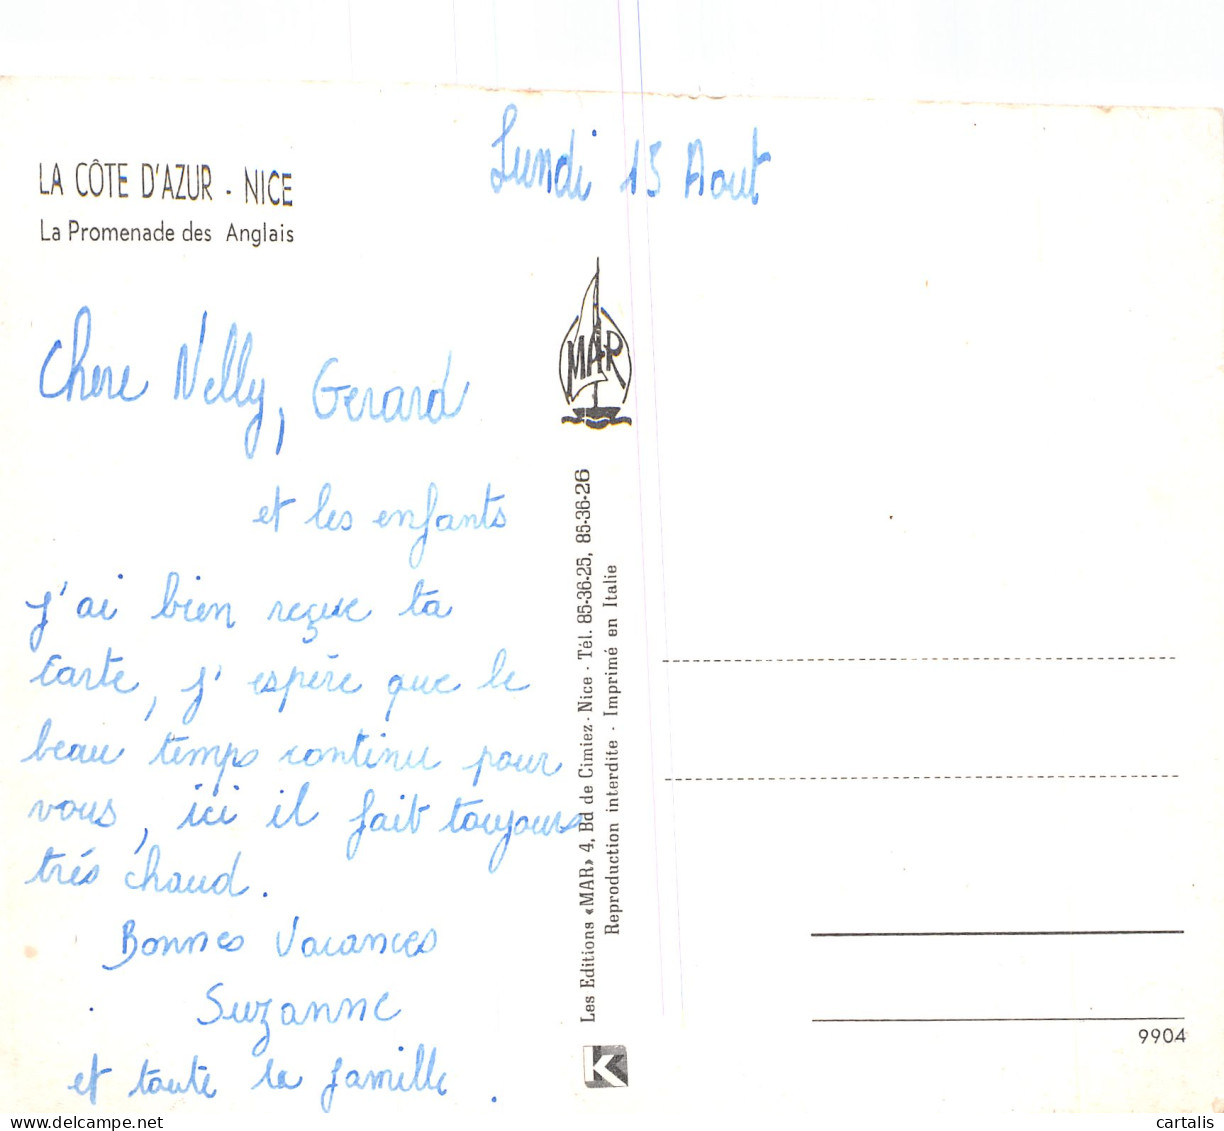 Lundi 15 Aout
LA CÔTE D'AZUR - NICE
La Promenade des Anglais
Chere Nelly, Gerard
et les enfants
J'ai bien reçue ta
carte, j'espére que le
beau temps continu pour
vous, ici il fait toujours
trés chaud.
Bonnes Vacances
Suzanne
et toute la famille.
MAR
Les Editions «MAR» 4, Bd de Cimiez - Nice - Tél. 85-36-25, 85-36-26
Reproduction interdite - Imprimé en Italie
K
9904
cartalis